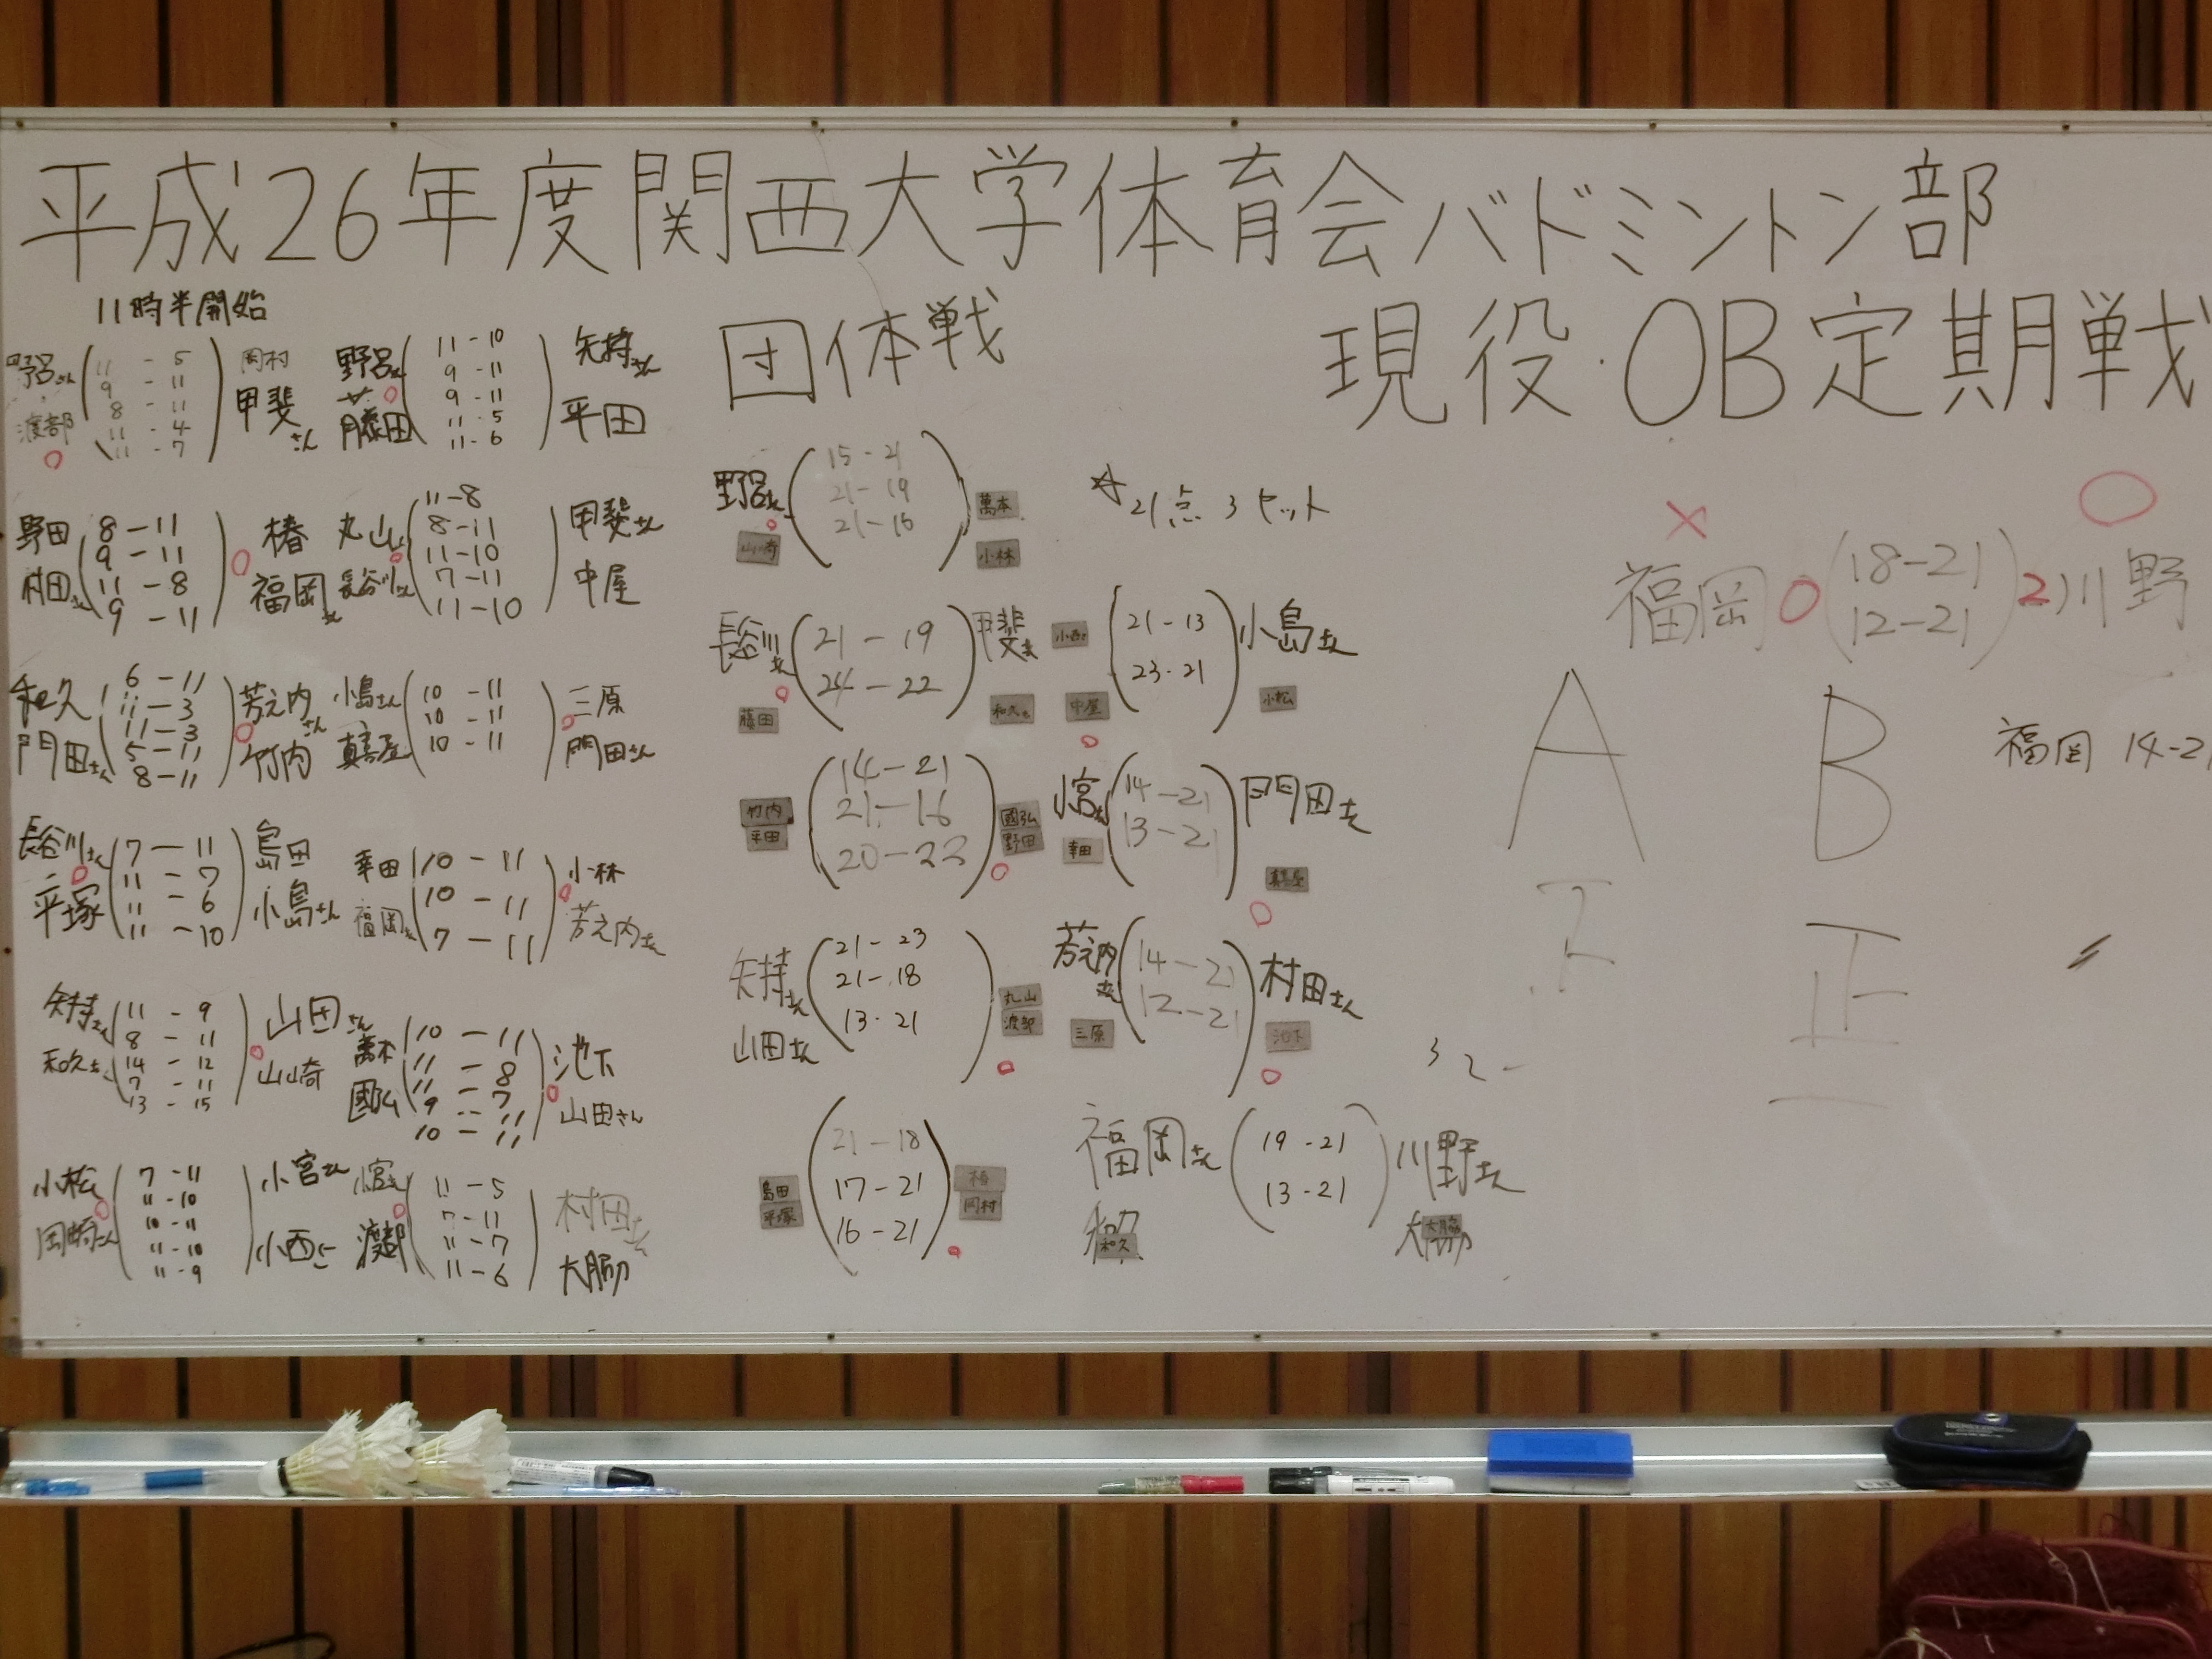 平成26年度関西大学体育会バドミントン部
現役・OB定期戦
11時半開始
野呂さん
渡部
11 - 5
9 - 11
8 - 11
11 - 4
11 - 7
岡村
甲斐さん
野田
村田さん
8 - 11
9 - 11
11 - 8
9 - 11
椿
福岡さん
和久
門田さん
6 - 11
11 - 3
11 - 3
5 - 11
8 - 11
芳之内さん
竹内
長谷川さん
平塚
7 - 11
11 - 7
11 - 6
11 - 10
島田
小島さん
矢持さん
和久さん
11 - 9
8 - 11
14 - 12
7 - 11
13 - 15
山田さん
山崎
小松
岡崎さん
7 - 11
11 - 10
10 - 11
11 - 10
11 - 9
小宮さん
小西
野呂さん
藤田
11 - 10
9 - 11
9 - 11
11 - 5
11 - 6
矢持さん
平田
丸山
長谷川さん
11 - 8
8 - 11
11 - 10
7 - 11
11 - 10
甲斐さん
中屋
小島さん
真喜屋
10 - 11
10 - 11
10 - 11
三原
門田さん
幸田
福岡さん
10 - 11
10 - 11
7 - 11
小林
芳之内さん
萬本
國弘
10 - 11
11 - 8
11 - 7
9 - 11
10 - 11
池下
山田さん
小宮さん
渡部
11 - 5
7 - 11
11 - 7
11 - 6
村田さん
大脇
団体戦
野呂さん
山崎
15 - 21
21 - 19
21 - 16
萬本
小林
☆21点3セット
長谷川さん
藤田
21 - 19
24 - 22
甲斐さん
和久
小西
中屋
21 - 13
23 - 21
小島さん
小松
竹内
平田
14 - 21
21 - 16
20 - 22
國弘
野田
小宮さん
幸田
14 - 21
13 - 21
門田さん
真喜屋
矢持さん
山田さん
21 - 23
21 - 18
13 - 21
丸山
渡部
芳之内さん
三原
14 - 21
12 - 21
村田さん
池下
島田
平塚
21 - 18
17 - 21
16 - 21
椿
岡村
福岡さん
和久
19 - 21
13 - 21
川野さん
大脇
× ○
福岡 0 (18-21 12-21) 2 川野
A B
福岡 14-21
3 2 -